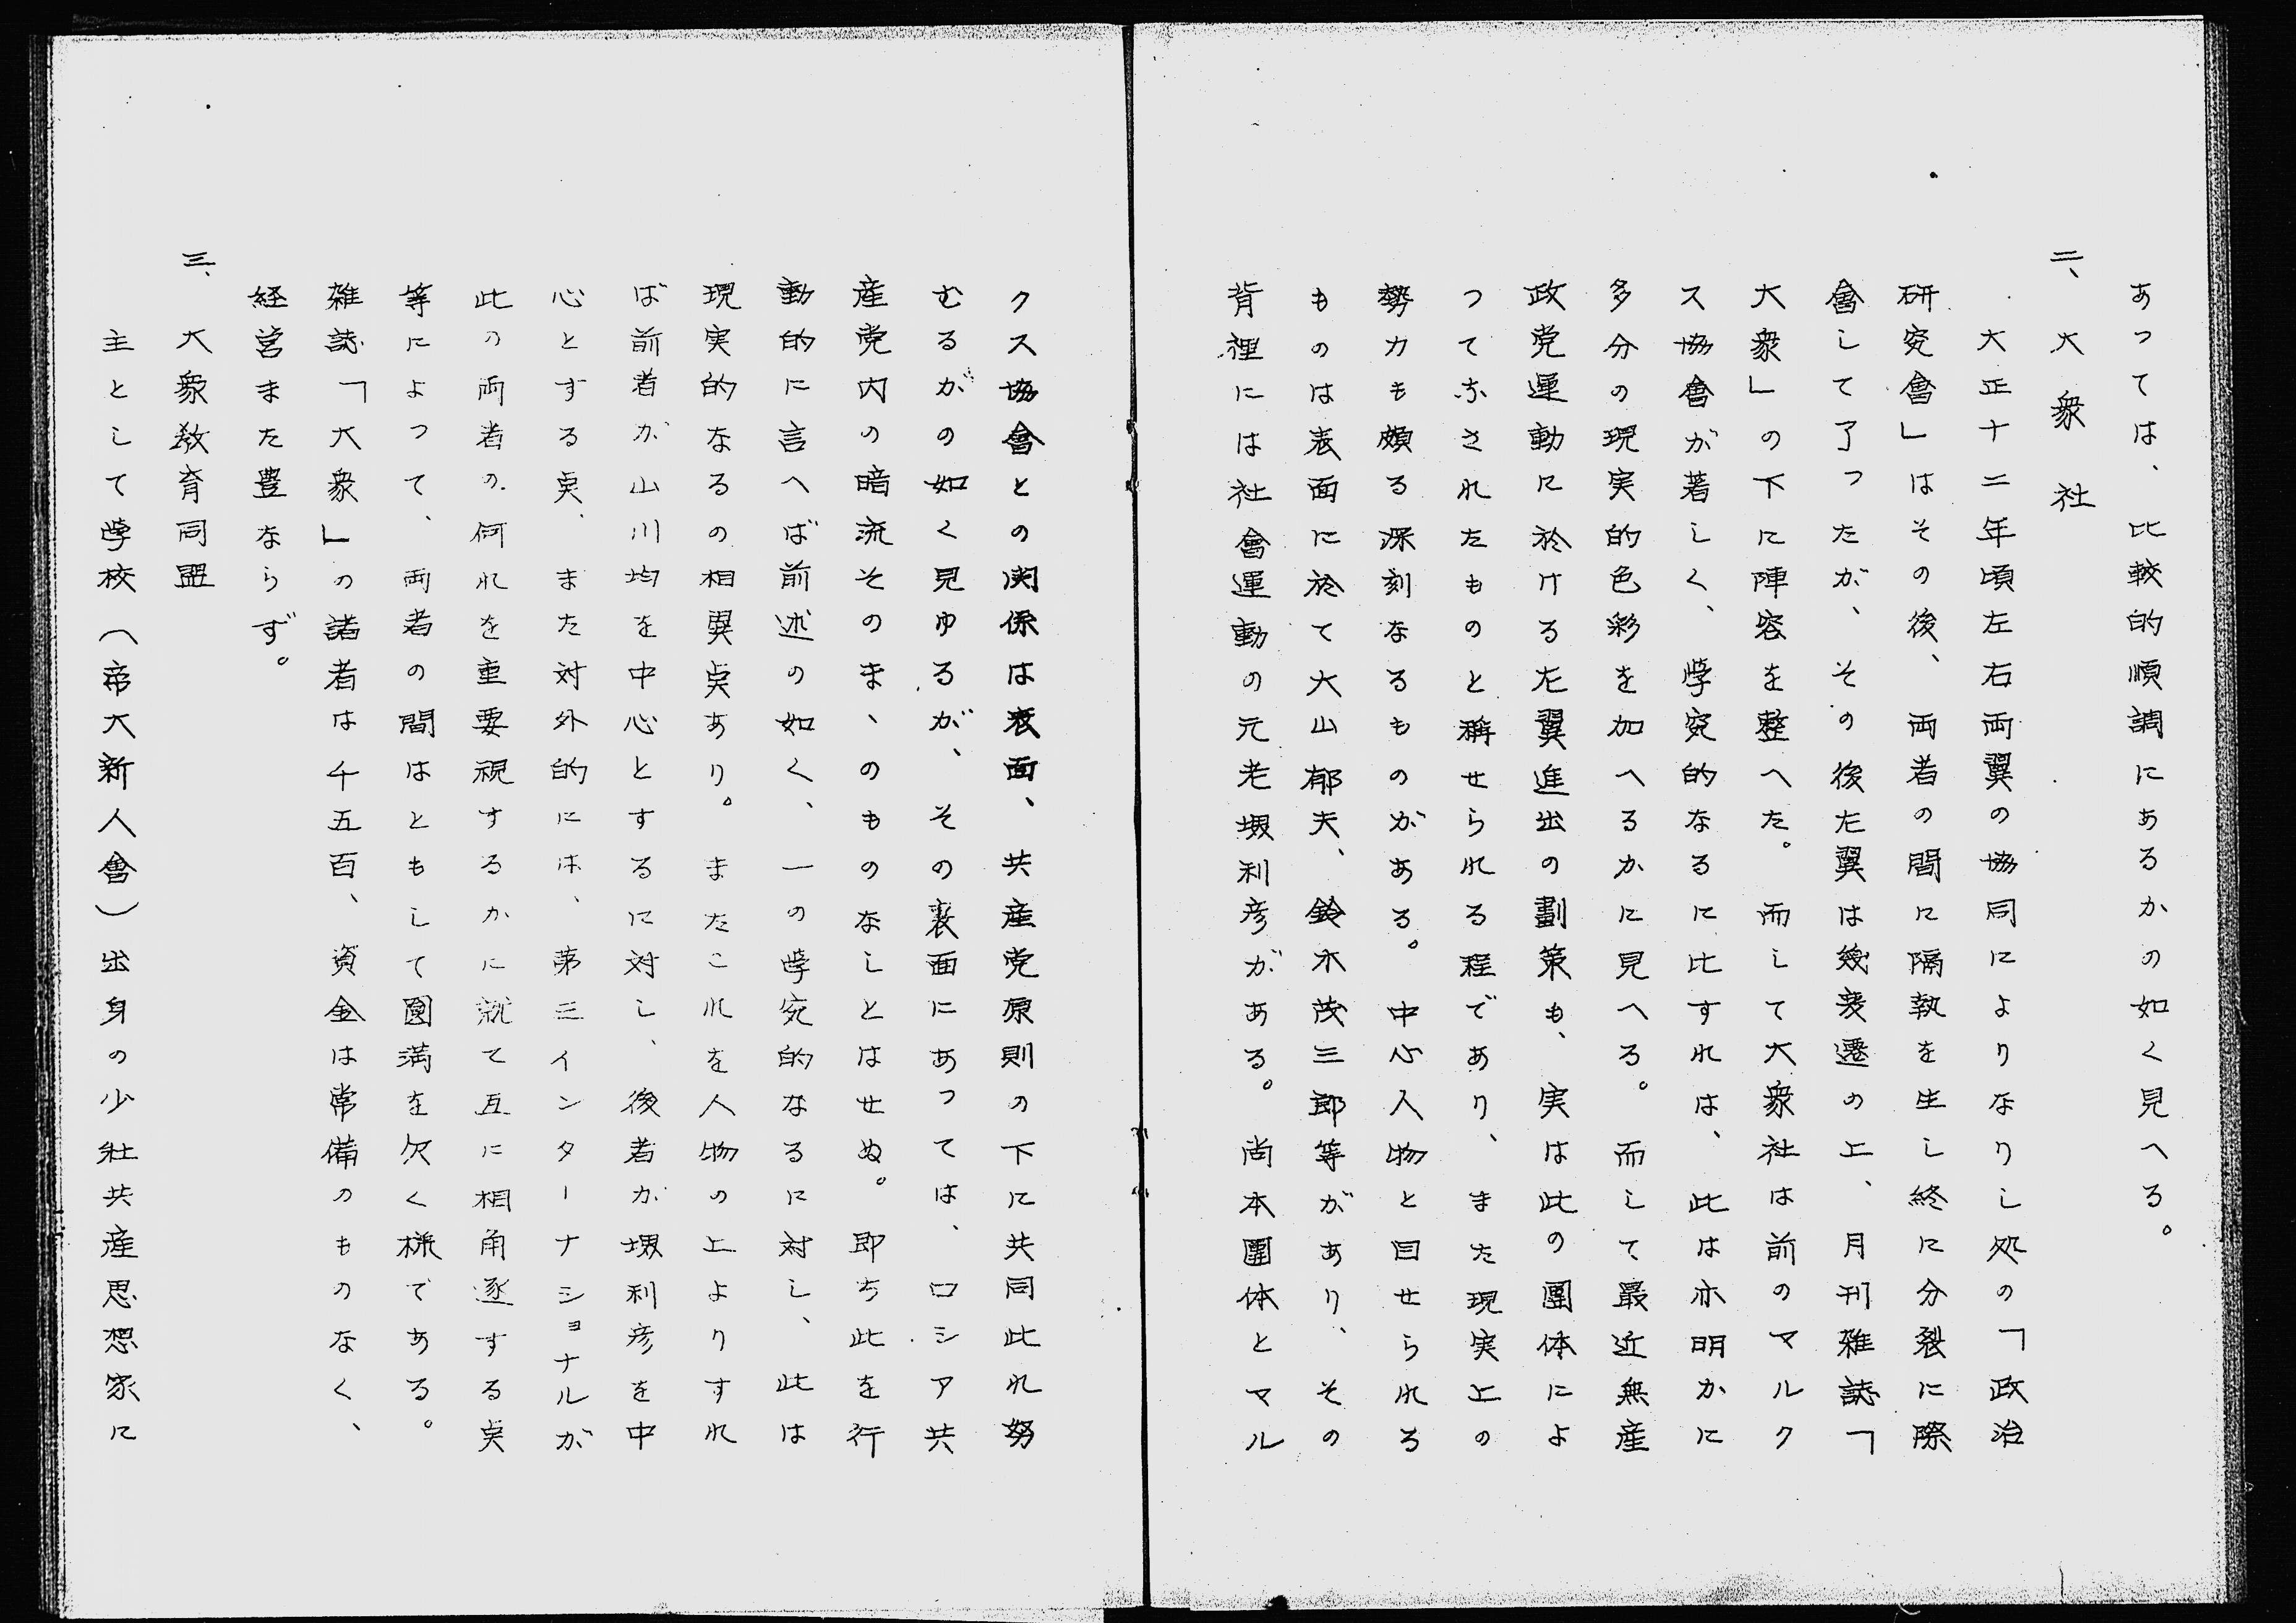 あっては、比較的順調にあるかの如く見へる。
二、大衆社
大正十二年頃左右両翼の協同によりなりし処の「政治
研究會」はその後、両者の間に隔執を生し終に分裂に際
會して了ったが、その後左翼は幾変遷の上、月刊雑誌「
大衆」の下に陣容を整へた。而して大衆社は前のマルク
ス協會が著しく、學究的なるに比すれは、此は亦明かに
多分の現実的色彩を加へるかに見へる。而して最近無産
政党運動に於ける左翼進出の劃策も、実は此の團体によ
つて示されたものと稱せられる程であり、また現実上の
勢力も頗る深刻なるものがある。中心人物と目せられる
ものは表面に於て大山郁夫、鈴木茂三郎等があり、その
背裡には社會運動の元老堺利彦がある。尚本團体とマル
クス協會との関係は表面、共産党原則の下に共同此れ努
むるがの如く見ゆるが、その裏面にあつては、ロシア共
産党内の暗流そのまゝのものなしとはせぬ。即ち此を行
動的に言へば前述の如く、一の學究的なるに対し、此は
現実的なるの相異奌あり。またこれを人物の上よりすれ
ば前者か山川均を中心とするに対し、後者か堺利彦を中
心とする奌、また対外的には、第三インターナショナルが
此の両者の何れを重要視するかに就て互に相角逐する奌
等によつて、両者の間はともして圓満を欠く様である。
雑誌「大衆」の讀者は千五百、資金は常備のものなく、
経営また豊ならず。
三、大衆教育同盟
主として學校（帝大新人會）出身の少壮共産思想家に